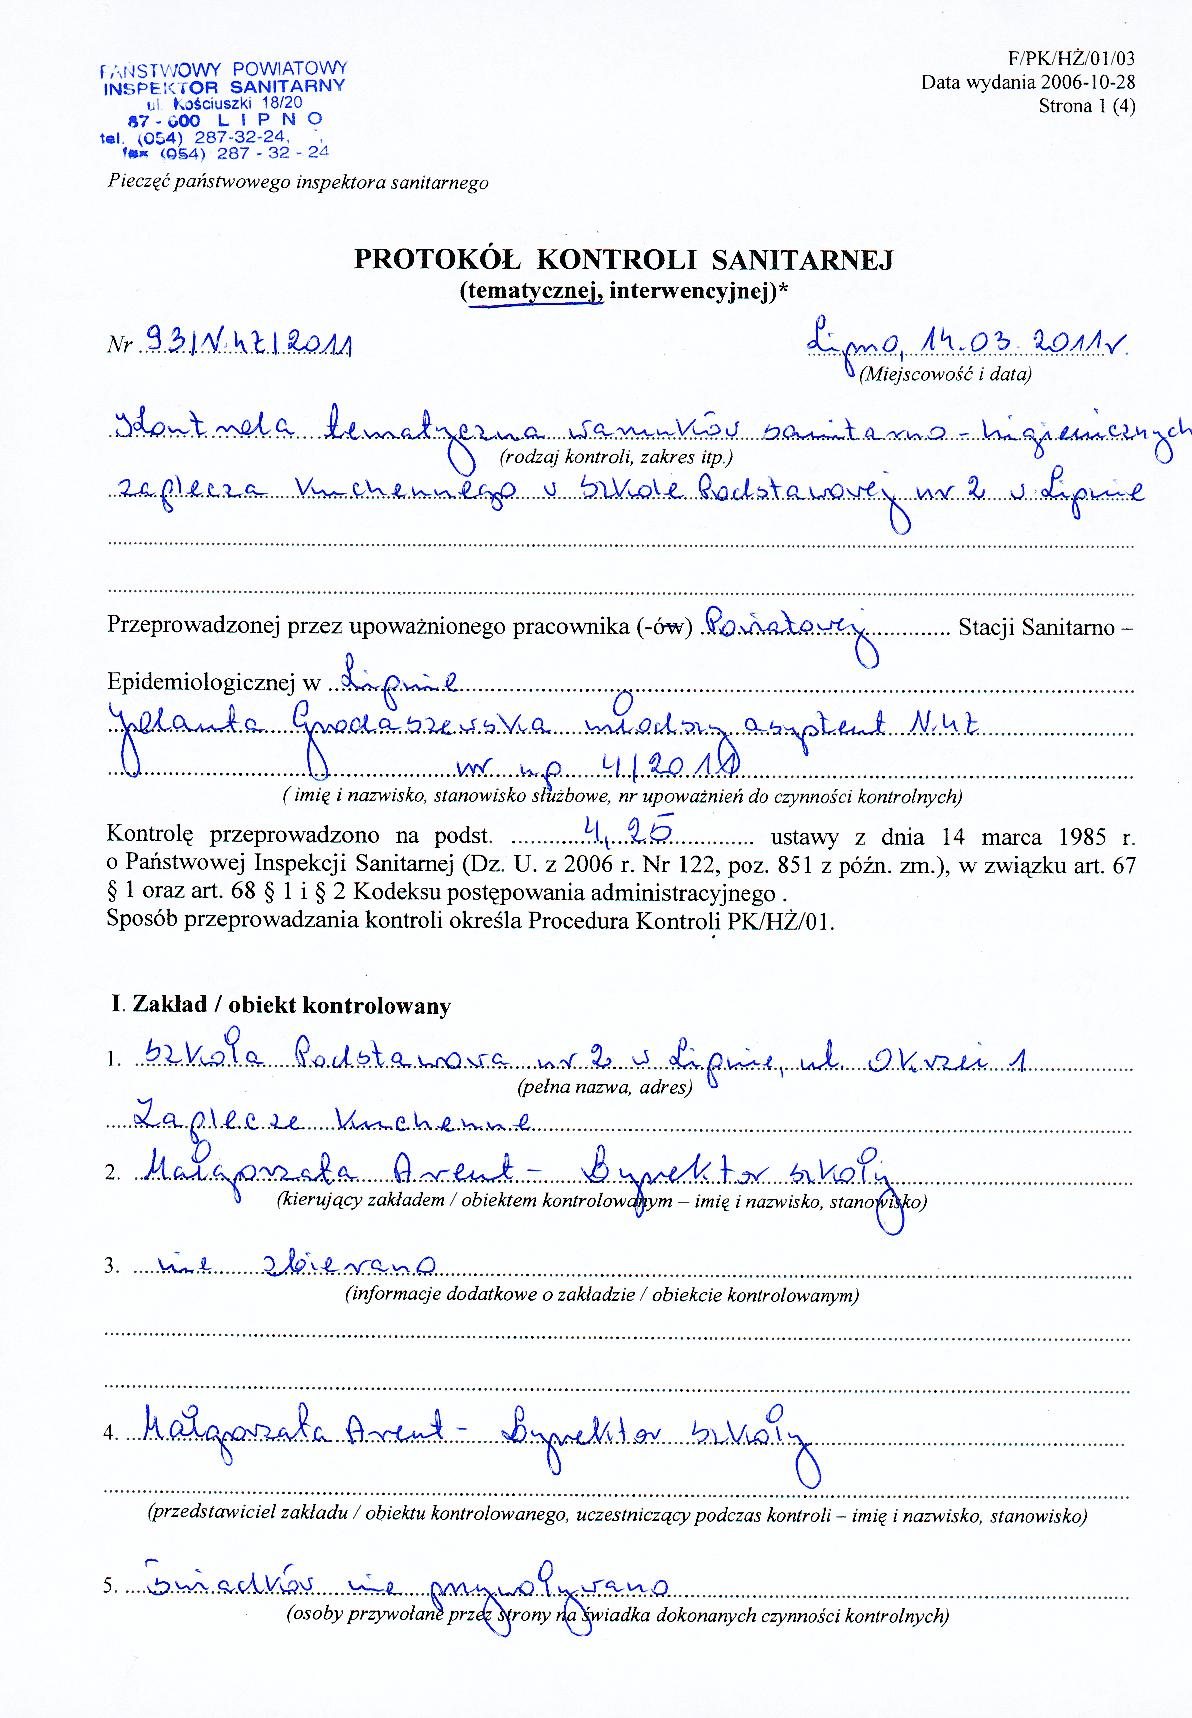 PAŃSTWOWY POWIATOWY
INSPEKTOR SANITARNY
ul. Kościuszki 18/20
87-600 L I P N O
tel. (054) 287-32-24,
fax (054) 287-32-24
Pieczęć państwowego inspektora sanitarnego
F/PK/HŻ/01/03
Data wydania 2006-10-28
Strona 1 (4)
PROTOKÓŁ KONTROLI SANITARNEJ
(tematycznej, interwencyjnej)*
Nr 93/N.HŻ/2011
Lipno, 14.03.2011r.
(Miejscowość i data)
Kontrola tematyczna warunków sanitarno-higienicznych
(rodzaj kontroli, zakres itp.)
zaplecza kuchennego w Szkole Podstawowej nr 2 w Lipnie
Przeprowadzonej przez upoważnionego pracownika (-ów) Powiatowej Stacji Sanitarno –
Epidemiologicznej w Lipnie
Jolanta Grodaszewska młodszy asystent N.HŻ
nr up 4/2011
( imię i nazwisko, stanowisko służbowe, nr upoważnień do czynności kontrolnych)
Kontrolę przeprowadzono na podst. 4, 25 ustawy z dnia 14 marca 1985 r.
o Państwowej Inspekcji Sanitarnej (Dz. U. z 2006 r. Nr 122, poz. 851 z późn. zm.), w związku art. 67
§ 1 oraz art. 68 § 1 i § 2 Kodeksu postępowania administracyjnego .
Sposób przeprowadzania kontroli określa Procedura Kontroli PK/HŻ/01.
I. Zakład / obiekt kontrolowany
1. Szkoła Podstawowa nr 2 w Lipnie, ul. Okrzei 1
(pełna nazwa, adres)
Zaplecze kuchenne
2. Małgorzata Arent - Dyrektor szkoły
(kierujący zakładem / obiektem kontrolowanym – imię i nazwisko, stanowisko)
3. nie zbierano
(informacje dodatkowe o zakładzie / obiekcie kontrolowanym)
4. Małgorzata Arent - Dyrektor szkoły
(przedstawiciel zakładu / obiektu kontrolowanego, uczestniczący podczas kontroli – imię i nazwisko, stanowisko)
5. Świadków nie przywoływano
(osoby przywołane przez strony na świadka dokonanych czynności kontrolnych)